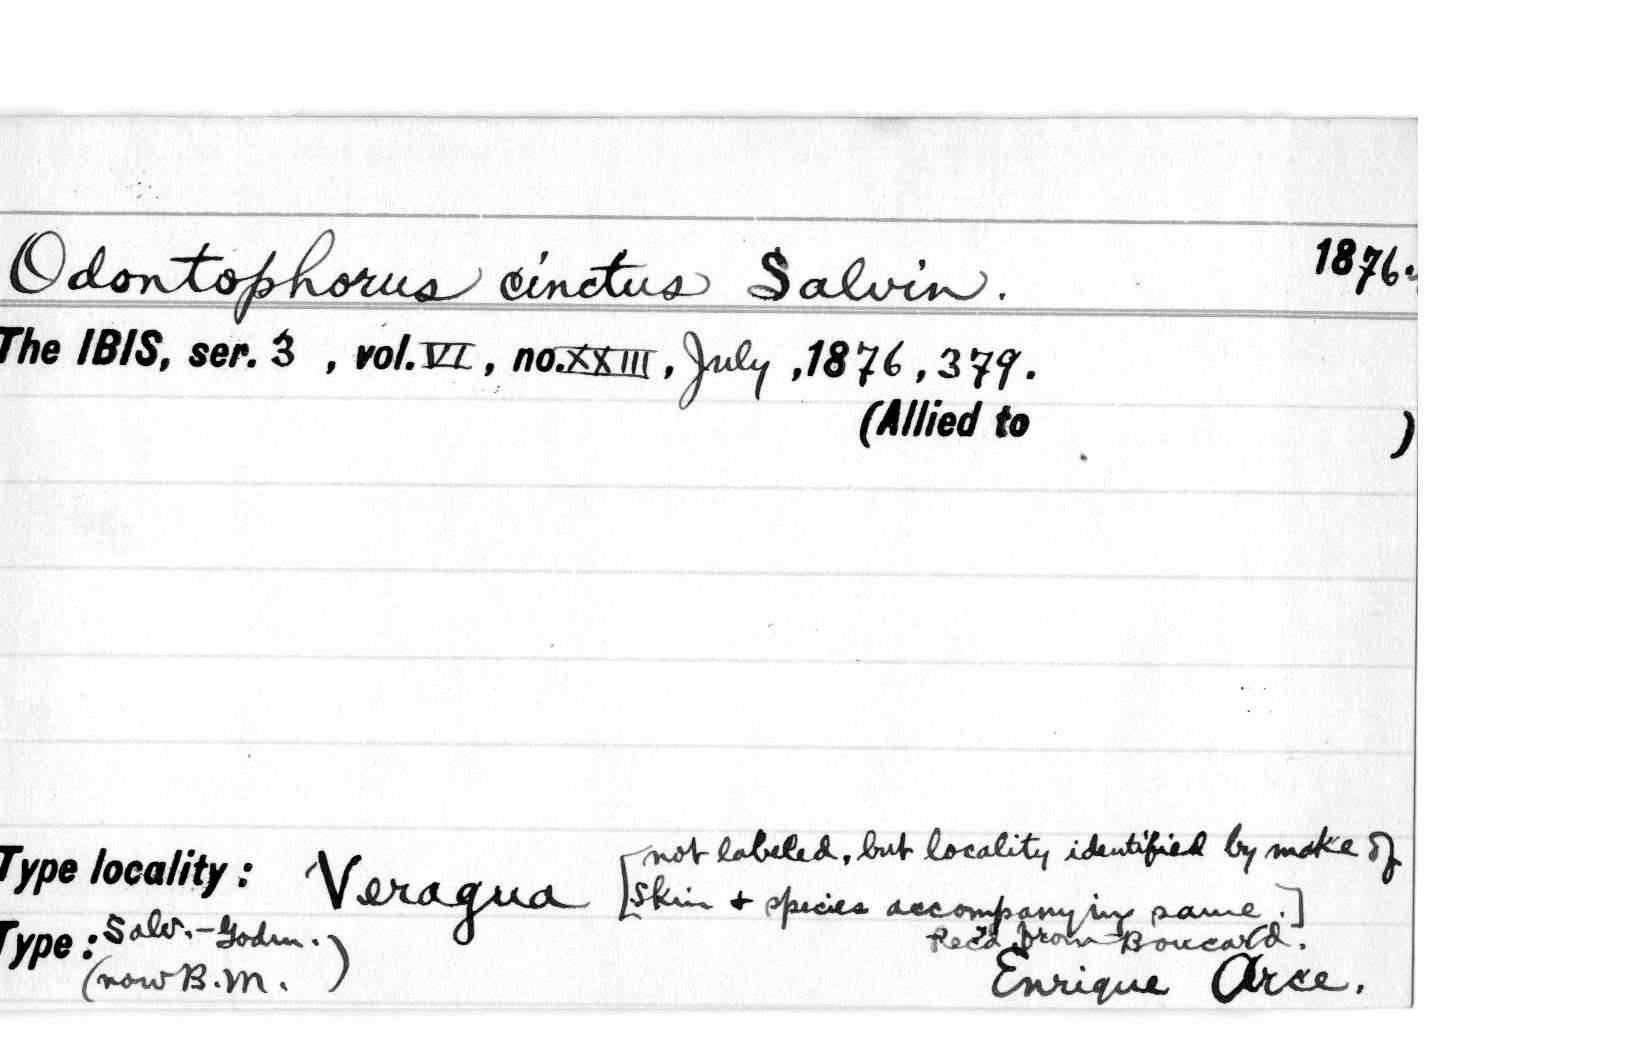 Odontophorus cinctus Salvin. 1876.
The IBIS, ser. 3 , vol. VI , no. XXIII , July ,1876 , 379.
(Allied to )
Type locality : Veragua [not labeled, but locality identified by make of
skin + species accompanying same.]
Type : Salv.-Godm. Rec'd from Boucard.
(now B.M. ) Enrique Arce.